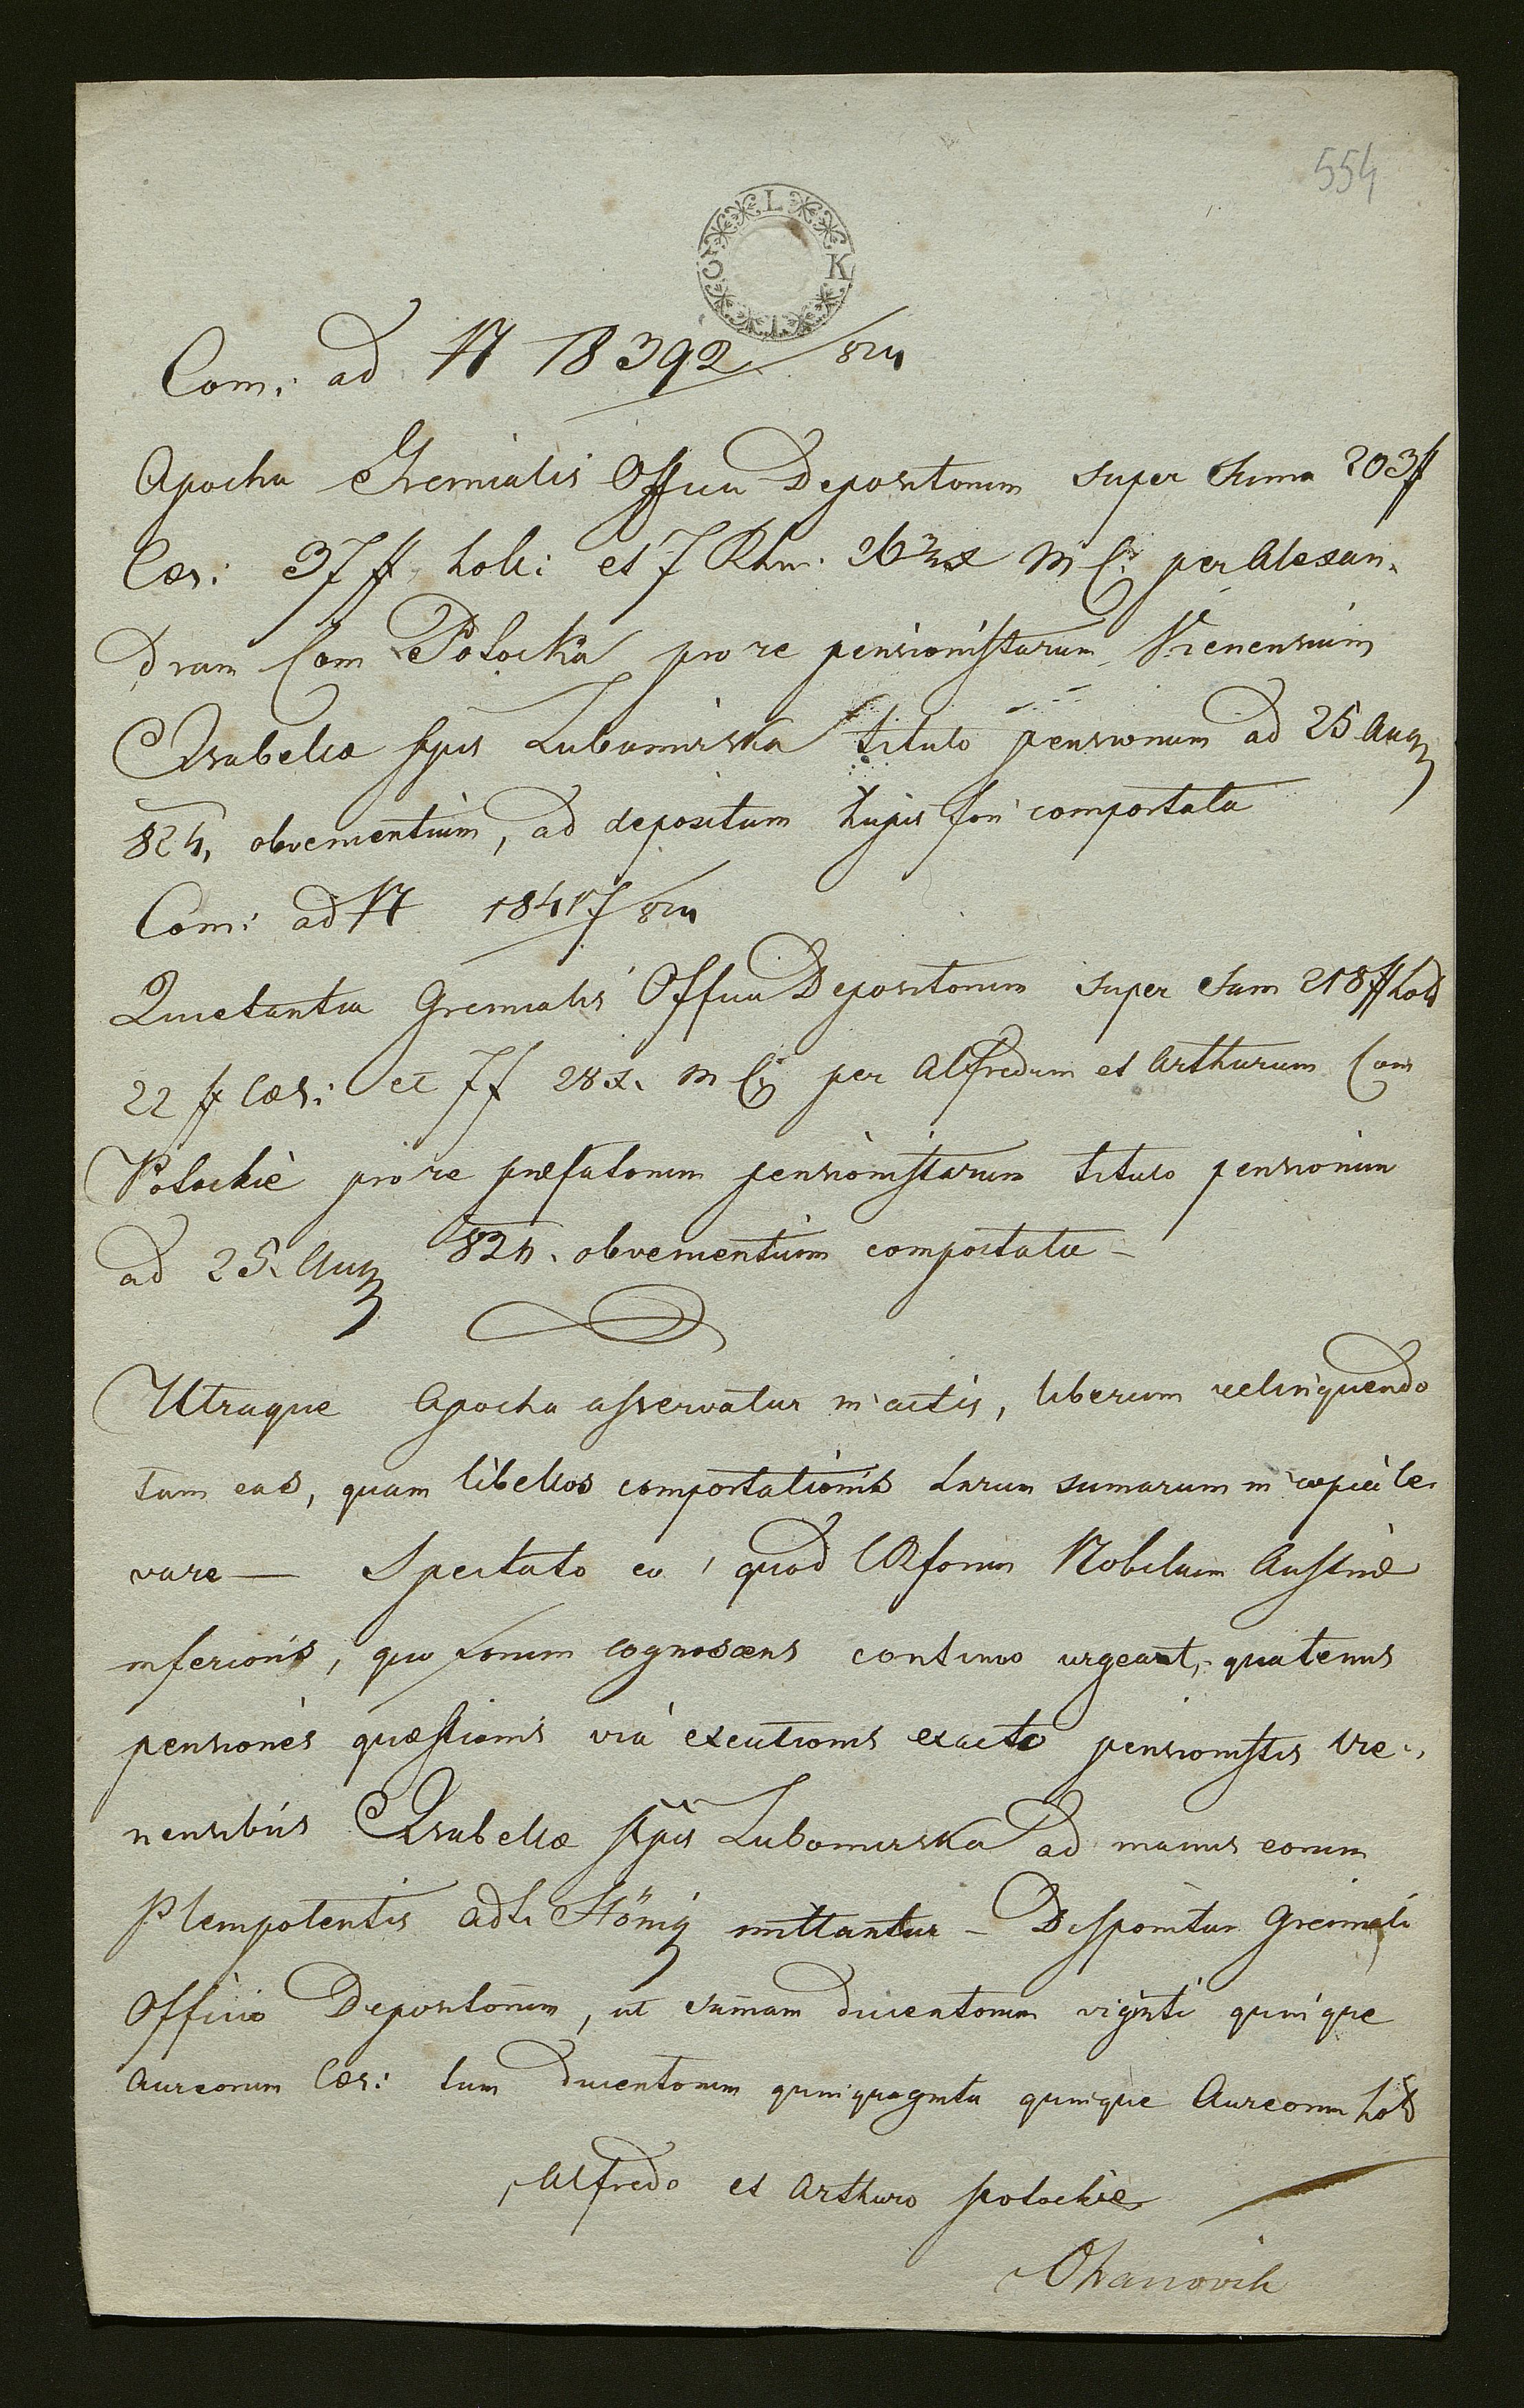 554
C L K L
Com: ad N 18392/824
Apocha Gremialis Officii Depositorum super Suma 203 #
Cæs: 37 # holl: et 7 Rhn. 26 2/4 x M C. per Alexan-
dram Com Potocka pro re pensionistarum Vienensium
Isabellæ Ppis Lubomirska titulo pensionum ad 25 Aug
824, obvenientium, ad depositum hujus fori comportata
Com: ad N 18417/824
Quietantia Gremialis Officii Depositorum super Sum 218 # holl
22 # Cæs: et 7 f 28 x. M C per Alfredum et Arthurum Com
Potockie pro re præfatorum pensionistarum titulo pensionum
ad 25. Aug 824. obvenientium comportatæ –
Utraque Apocha asservatur in actis, liberum relinquendo
tam eas, quam libellos comportationis harum sumarum in copia le-
vare — Spectato eo, quod CRforum Nobilium Austriæ
inferioris, qua forum cognoscens continuo urgeat, quatenus
pensiones quæstionis via executionis exacto pensionistis Vie-
nensibus Isabellæ Ppis Lubomirska ad manus eorum
Plenipotentis adti Hönig mittantur – Disponitur Gremiali
Officio Depositorum, ut sumam ducentorum viginti quinque
Aureorum Cæs: tum ducentorum quinquaginta quinque Aureorum holl
Alfredo et Arthuro Potockie